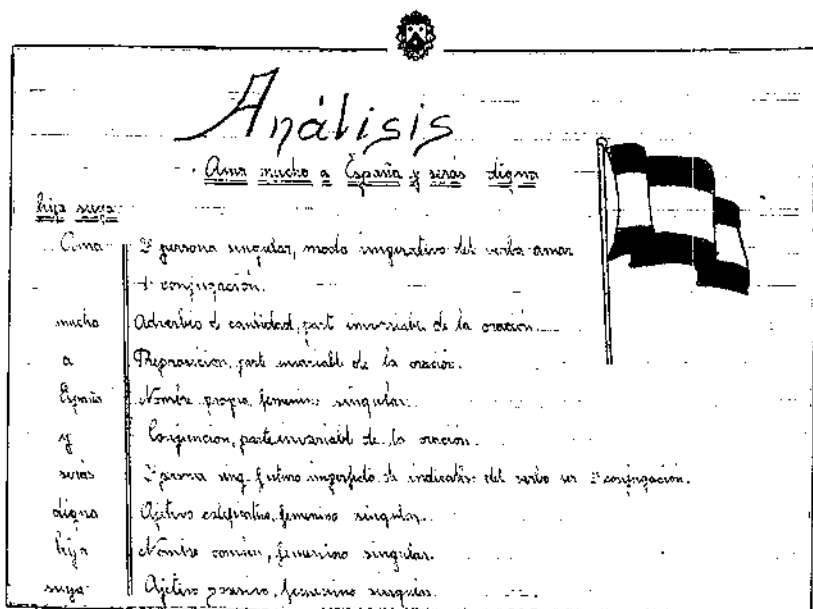 Análisis
Ama mucho a España y serás digna
hija suya
Ama 2ª persona singular, modo imperativo del verbo amar
1ª conjugación.
mucho Adverbio de cantidad, parte invariable de la oración.
a Preposicion, parte invariable de la oración.
España Nombre propio, femenino singular.
y Conjuncion, parte invariable de la oración.
serás 2ª persona sing. futuro imperfecto de indicativo del verbo ser 2ª conjugación.
digna Ajetivo calificativo, femenino singular.
hija Nombre común, femenino singular.
suya Ajetivo posesivo, femenino singular.